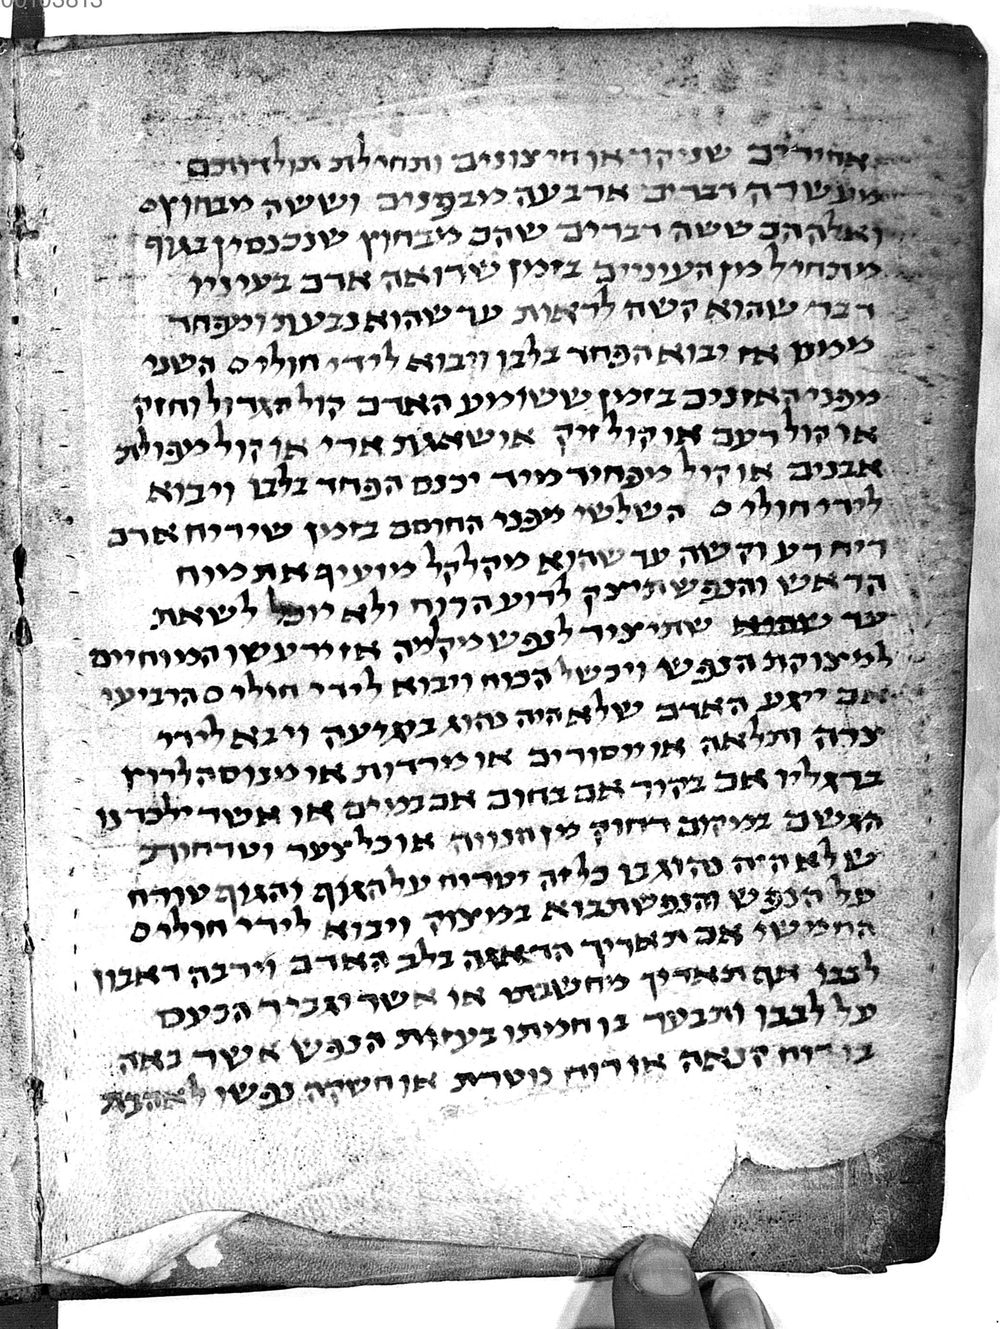 00103813
אחירים שניקראו חיצונים ותחילת תולדותם
מעשרה דברים ארבעה מבפנים וששה מבחוץ ס
ואלה הם ששה דברים שהם מבחוץ שנכנסין בגוף
מתחיל מן העינים בזמן שרואה אדם בעיניו
דבר שהוא קשה לראות עד שהוא נבעת ומפחד
ממנו אז יבוא הפחד בלבו ויבוא לידי חולי ס השני
מפני האזנים בזמן ששומע האדם קול הגדול וחזק
או קול רעם או קול זיק או שאגת ארי או קול מפולת
אבנים או קול מפחיד מיד יכנס הפחד בלבו ויבוא
לידי חולי ס השלשי מפני החוטם בזמן שיריח אדם
ריח רע וקשה עד שהוא מקלקל מועיף את מוח
הראש והנפש תיצק לרוע הרוח ולא יוכל לשאת
עד שהוא שתיציר לנפש מיקלמה אז ירעשו המוחיים
למצוקת הנפש ויכשל הכוח ויבוא לידי חולי ס הרביעי
אם ייגע האדם שלא היה נהוג בקגיעה ויבא לידי
צרה ותלאה או ייסורים או מרדות או מנוסה לרוץ
ברגליו אם בקור אם בחום אם במים או אשר ילכדנו
הגשם במקום רחוק מן הנווה או כל צער וטרחות
שלא היה נהוג בו כל זה יטריח על הגוף והגוף טורח
על הנפש והנפש תבוא במצוק ויבוא לידי חולי ס
החמישי אם תאריך הדאגה בלב האדם וירבה דאבון
לבבו אף תאריך מחשבתו או אשר יגביר הכעס
על לבבו ותבער בו חמתו בעזות הנפש אשר באה
בו רוח קנאה או רוח נוטרת או חשקה נפשו לאהבת